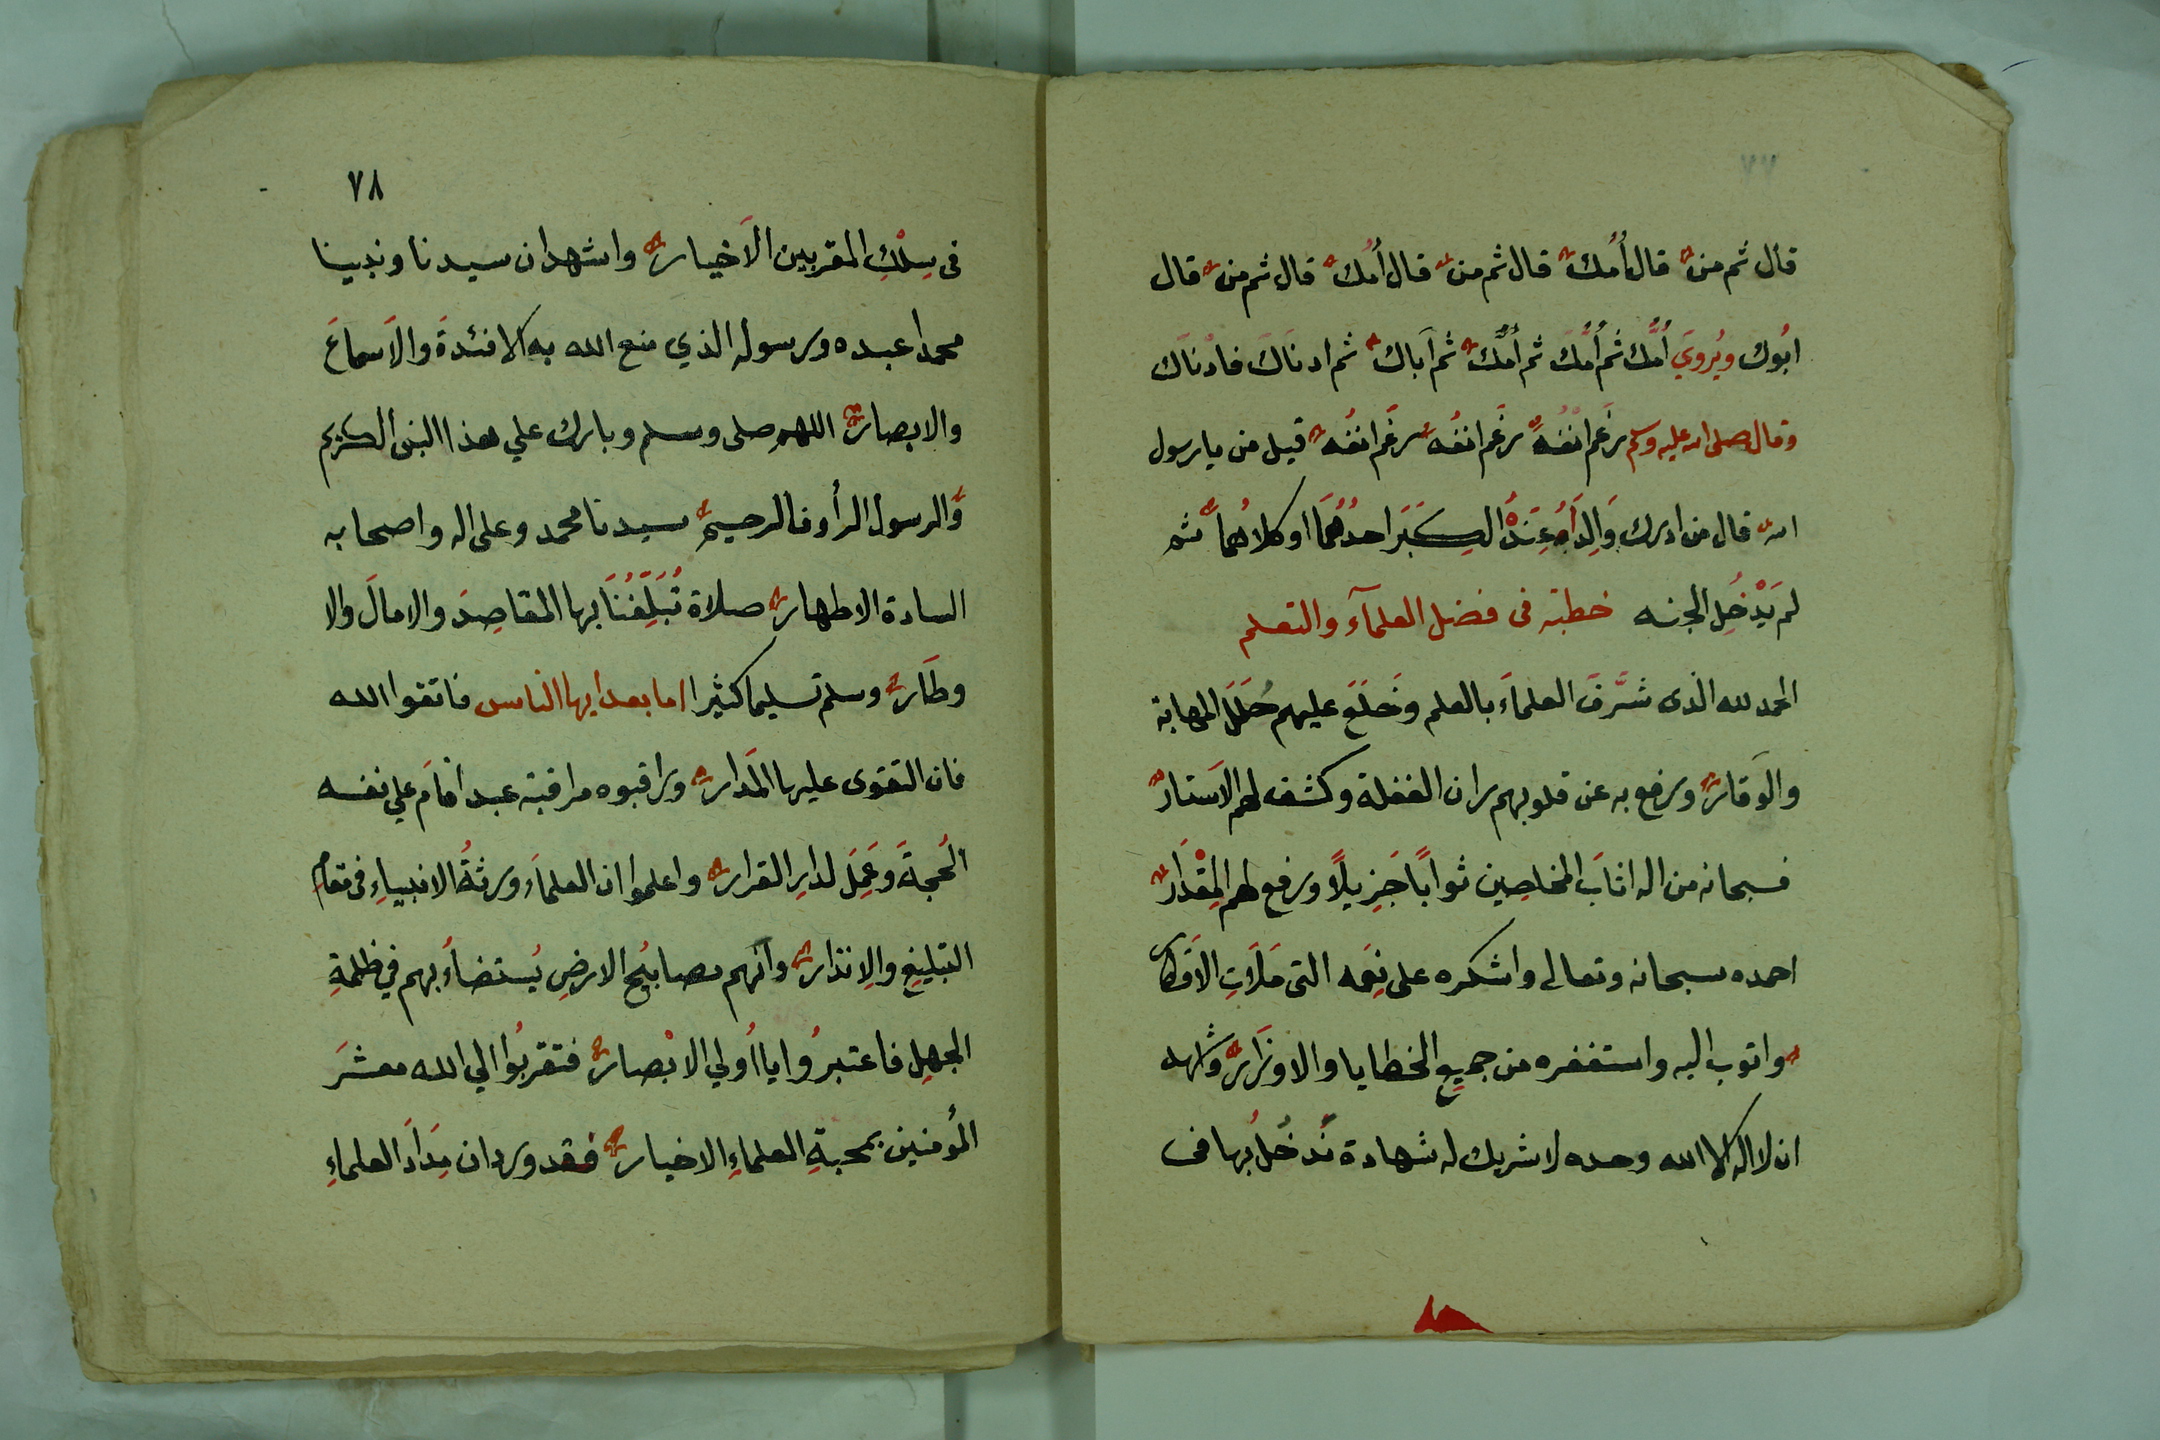 ٧٧
قال ثم من قال أُمك قال ثم من قال أُمك قال ثم من قال
ابُوك ويُروَي أُمَّك ثم أُمَّكَ ثم أُمَّكَ ثم آباك ثم ادناكَ فادْناَك
وقال صلى الله عليه وسلم رغَم انفُه رغَم انفُه رغَم انفُه قيل من يا رسول
الله قال من ادرك وَالِداَهُ عِنَدْ الكِبَر احدُهُمَا او كلاهُما ثم
لم يَدْخُلِ الجنه خطبته فى فضل العلمآء والتعلم
الحمد لله الذى شَرَّفَ العلماَء بالعلم وخَلَعَ عليهم حُلَلَ المهابة
والوَقار ورفع به عن قلوبهم ران الغفلة وكشف لهم الاَستار
فسبحانه من اله اثاَب المخلصِين ثواباً جَزِيلاً ورفع لهم المِقْدَار
احمده سبحانه وتعالى واشكره على نِعَمه التى مَلَاَتِ الاَفكار
واتوب اليه واستغفره من جميعِ الخطايا والاوزَار واشهد
ان لا اله الا الله وحده لا شريك له شهادة نُدخُلُ بها فى
٧٨
فى سِلْكِ المقربين الاَخيار واشهد ان سيدنا ونبينا
محمدا عبده ورسوله الذي منع الله به الافئدةَ والاَسماعَ
والابصار اللهم صلى وسلم وبارك علي هذا النبى الكريم
والرسول الرأوف الرحيم سيدنا محمد وعلى اله واصحابه
السادة الاطهار صلاة تُبَلِّغُنَا بها المقاصِدَ والامالَ والا
وطَار وسلم تسليما كثيرا اما بعد ايها الناس فاتقوا الله
فان التقوى عليها المَدار وراقبوه مراقبته عبد اقامَ علي نفسه
الحُجةَ وعَمِلَ لدارِ القرار واعلموا ان العلماَء ورثةُ الانبياءِ فى مقامِ
التبليغِ والاِنذار وانهم مصابيُح الارضِ يُستضاُء بهم في ظلمةِ
الجهلِ فاعتبرُوا يا اُولي الابْصار فتقربُوا الي الله معشرَ
المُؤمنين بمحبةِ العلماءِ الاخيار فقد ورد ان مِدَادَ العلماءِ